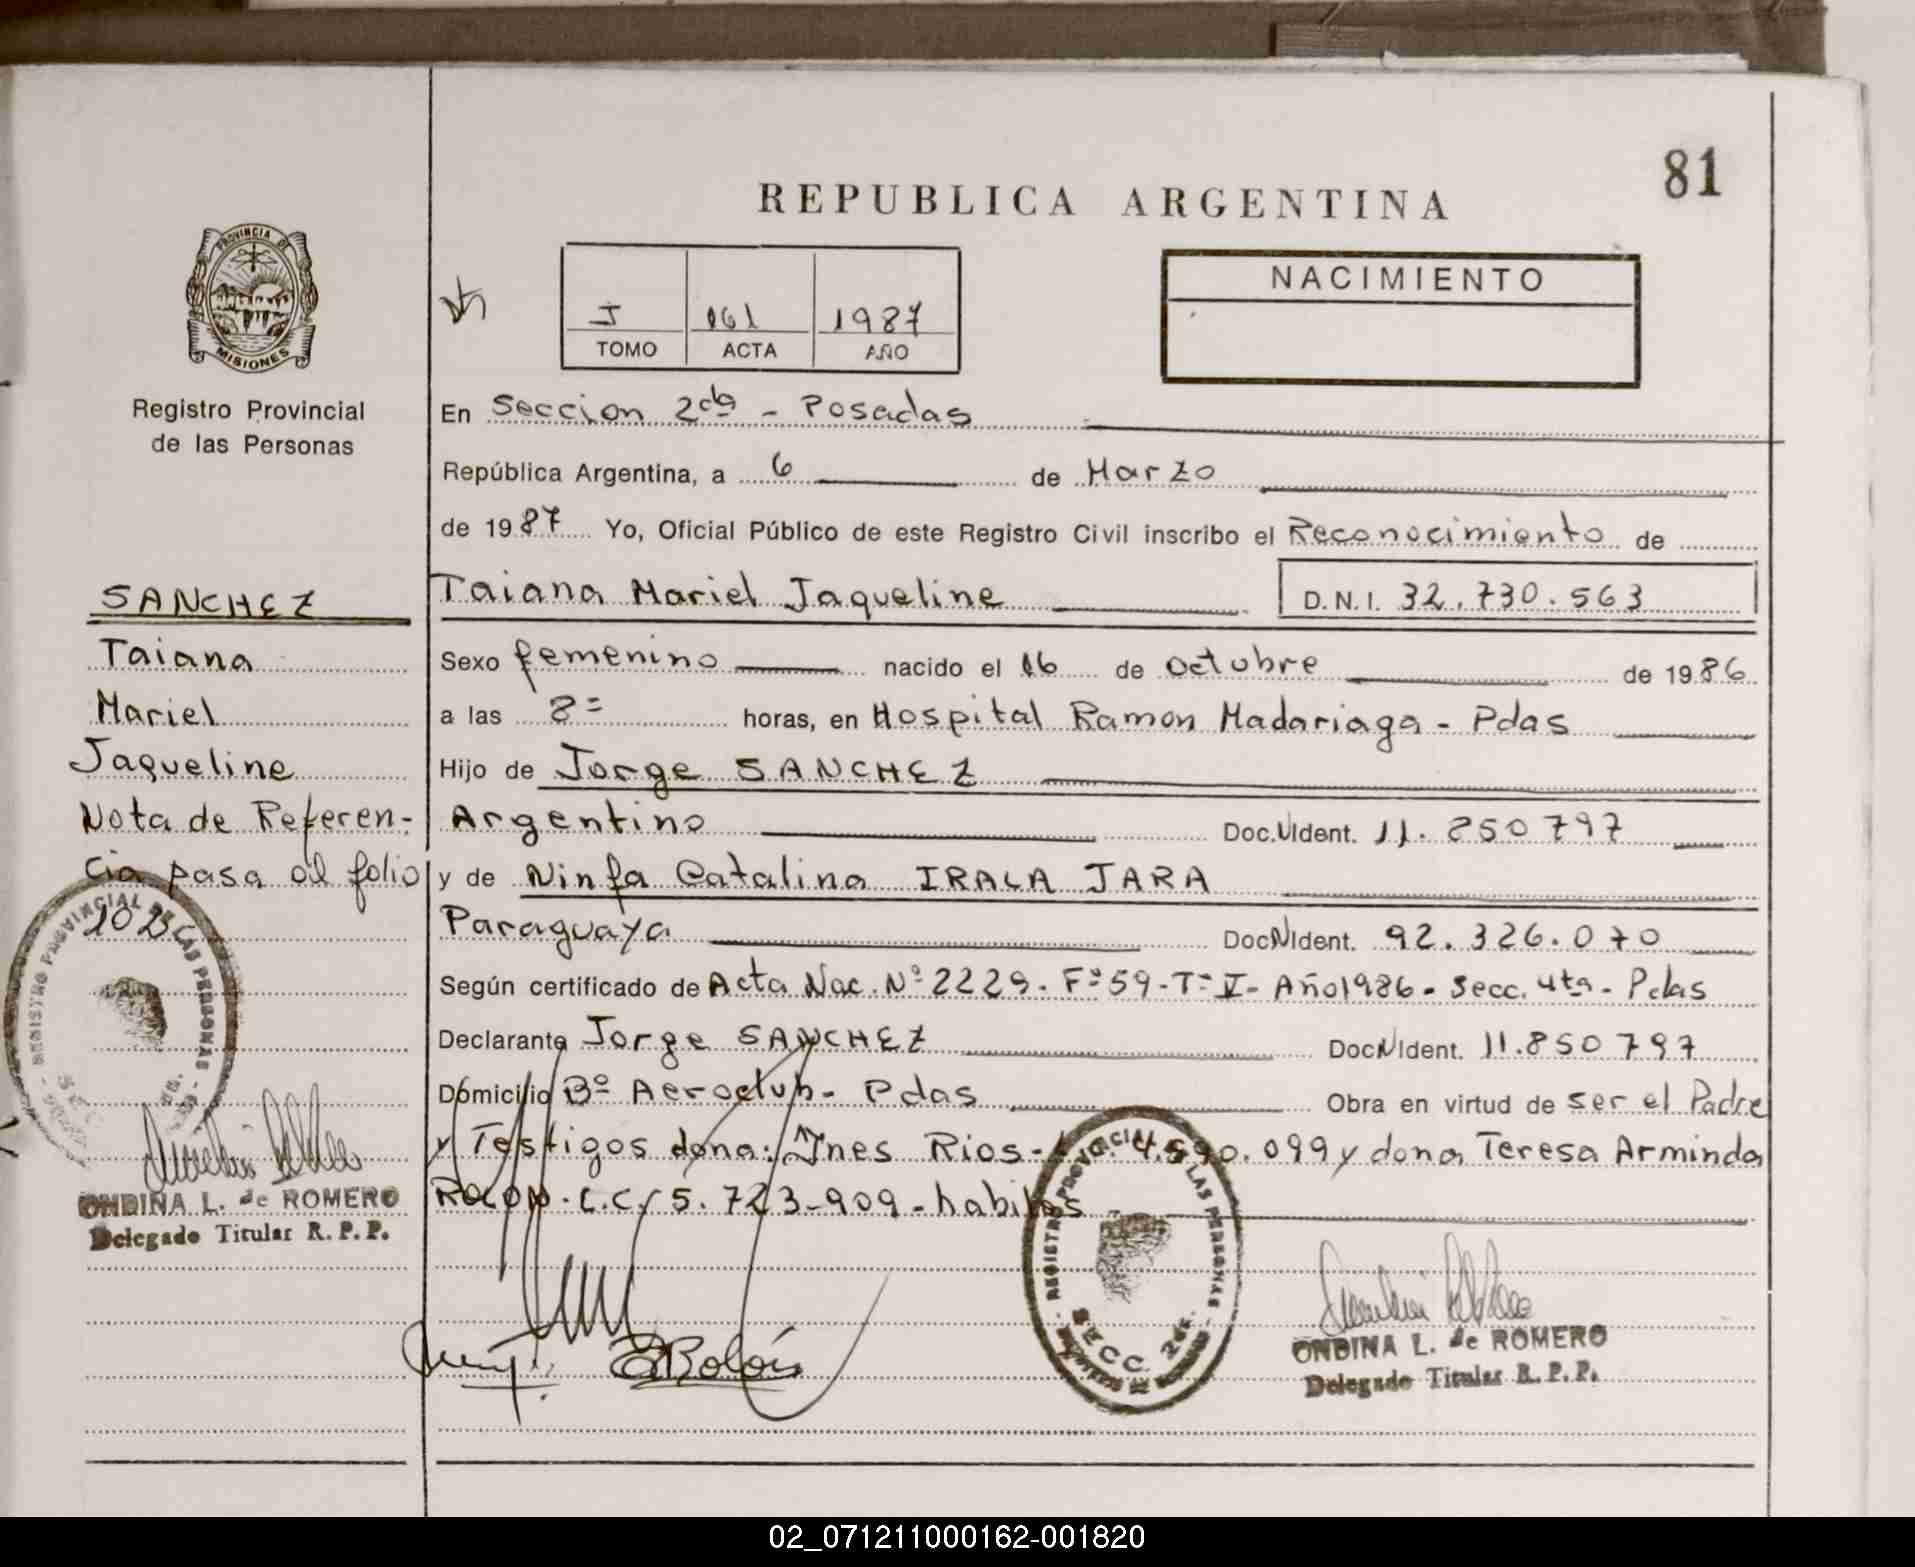 81
REPUBLICA ARGENTINA
PROVINCIA DE
MISIONES
Registro Provincial
de las Personas
I 161 1987
TOMO ACTA AÑO
NACIMIENTO
En Seccion 2da - Posadas
República Argentina, a 6 de Marzo
de 1987 Yo, Oficial Público de este Registro Civil inscribo el Reconocimiento de
Taiana Mariel Jaqueline D.N.I. 32.730.563
Sexo femenino nacido el 16 de octubre de 1986
a las 8= horas, en Hospital Ramon Madariaga - Pdas
Hijo de Jorge SANCHEZ
Argentino Doc. Ident. 11.850797
y de Ninfa Catalina IRALA JARA
Paraguaya Doc Ident. 92.326.070
Según certificado de Acta Nac. Nº 2229. Fº 59 - Tº V - Año 1986 - Secc. 4ta - Pdas
Declarante Jorge SANCHEZ Doc Ident. 11.850797
Domicilio Bº Aeroclub - Pdas Obra en virtud de ser el Padre
y Testigos dona: Ines Rios - 4.590.099 y dona Teresa Arminda
C.C. 5.723-909 - habiles
SANCHEZ
Taiana
Mariel
Jaqueline
Nota de Referen-
cia pasa al folio
102
REGISTRO PROVINCIAL DE LAS PERSONAS
ONDINA L. de ROMERO
Delegado Titular R. P. P.
REGISTRO PROVINCIAL DE LAS PERSONAS
SECC. 2da.
ONDINA L. de ROMERO
Delegado Titular R. P. P.
02_071211000162-001820